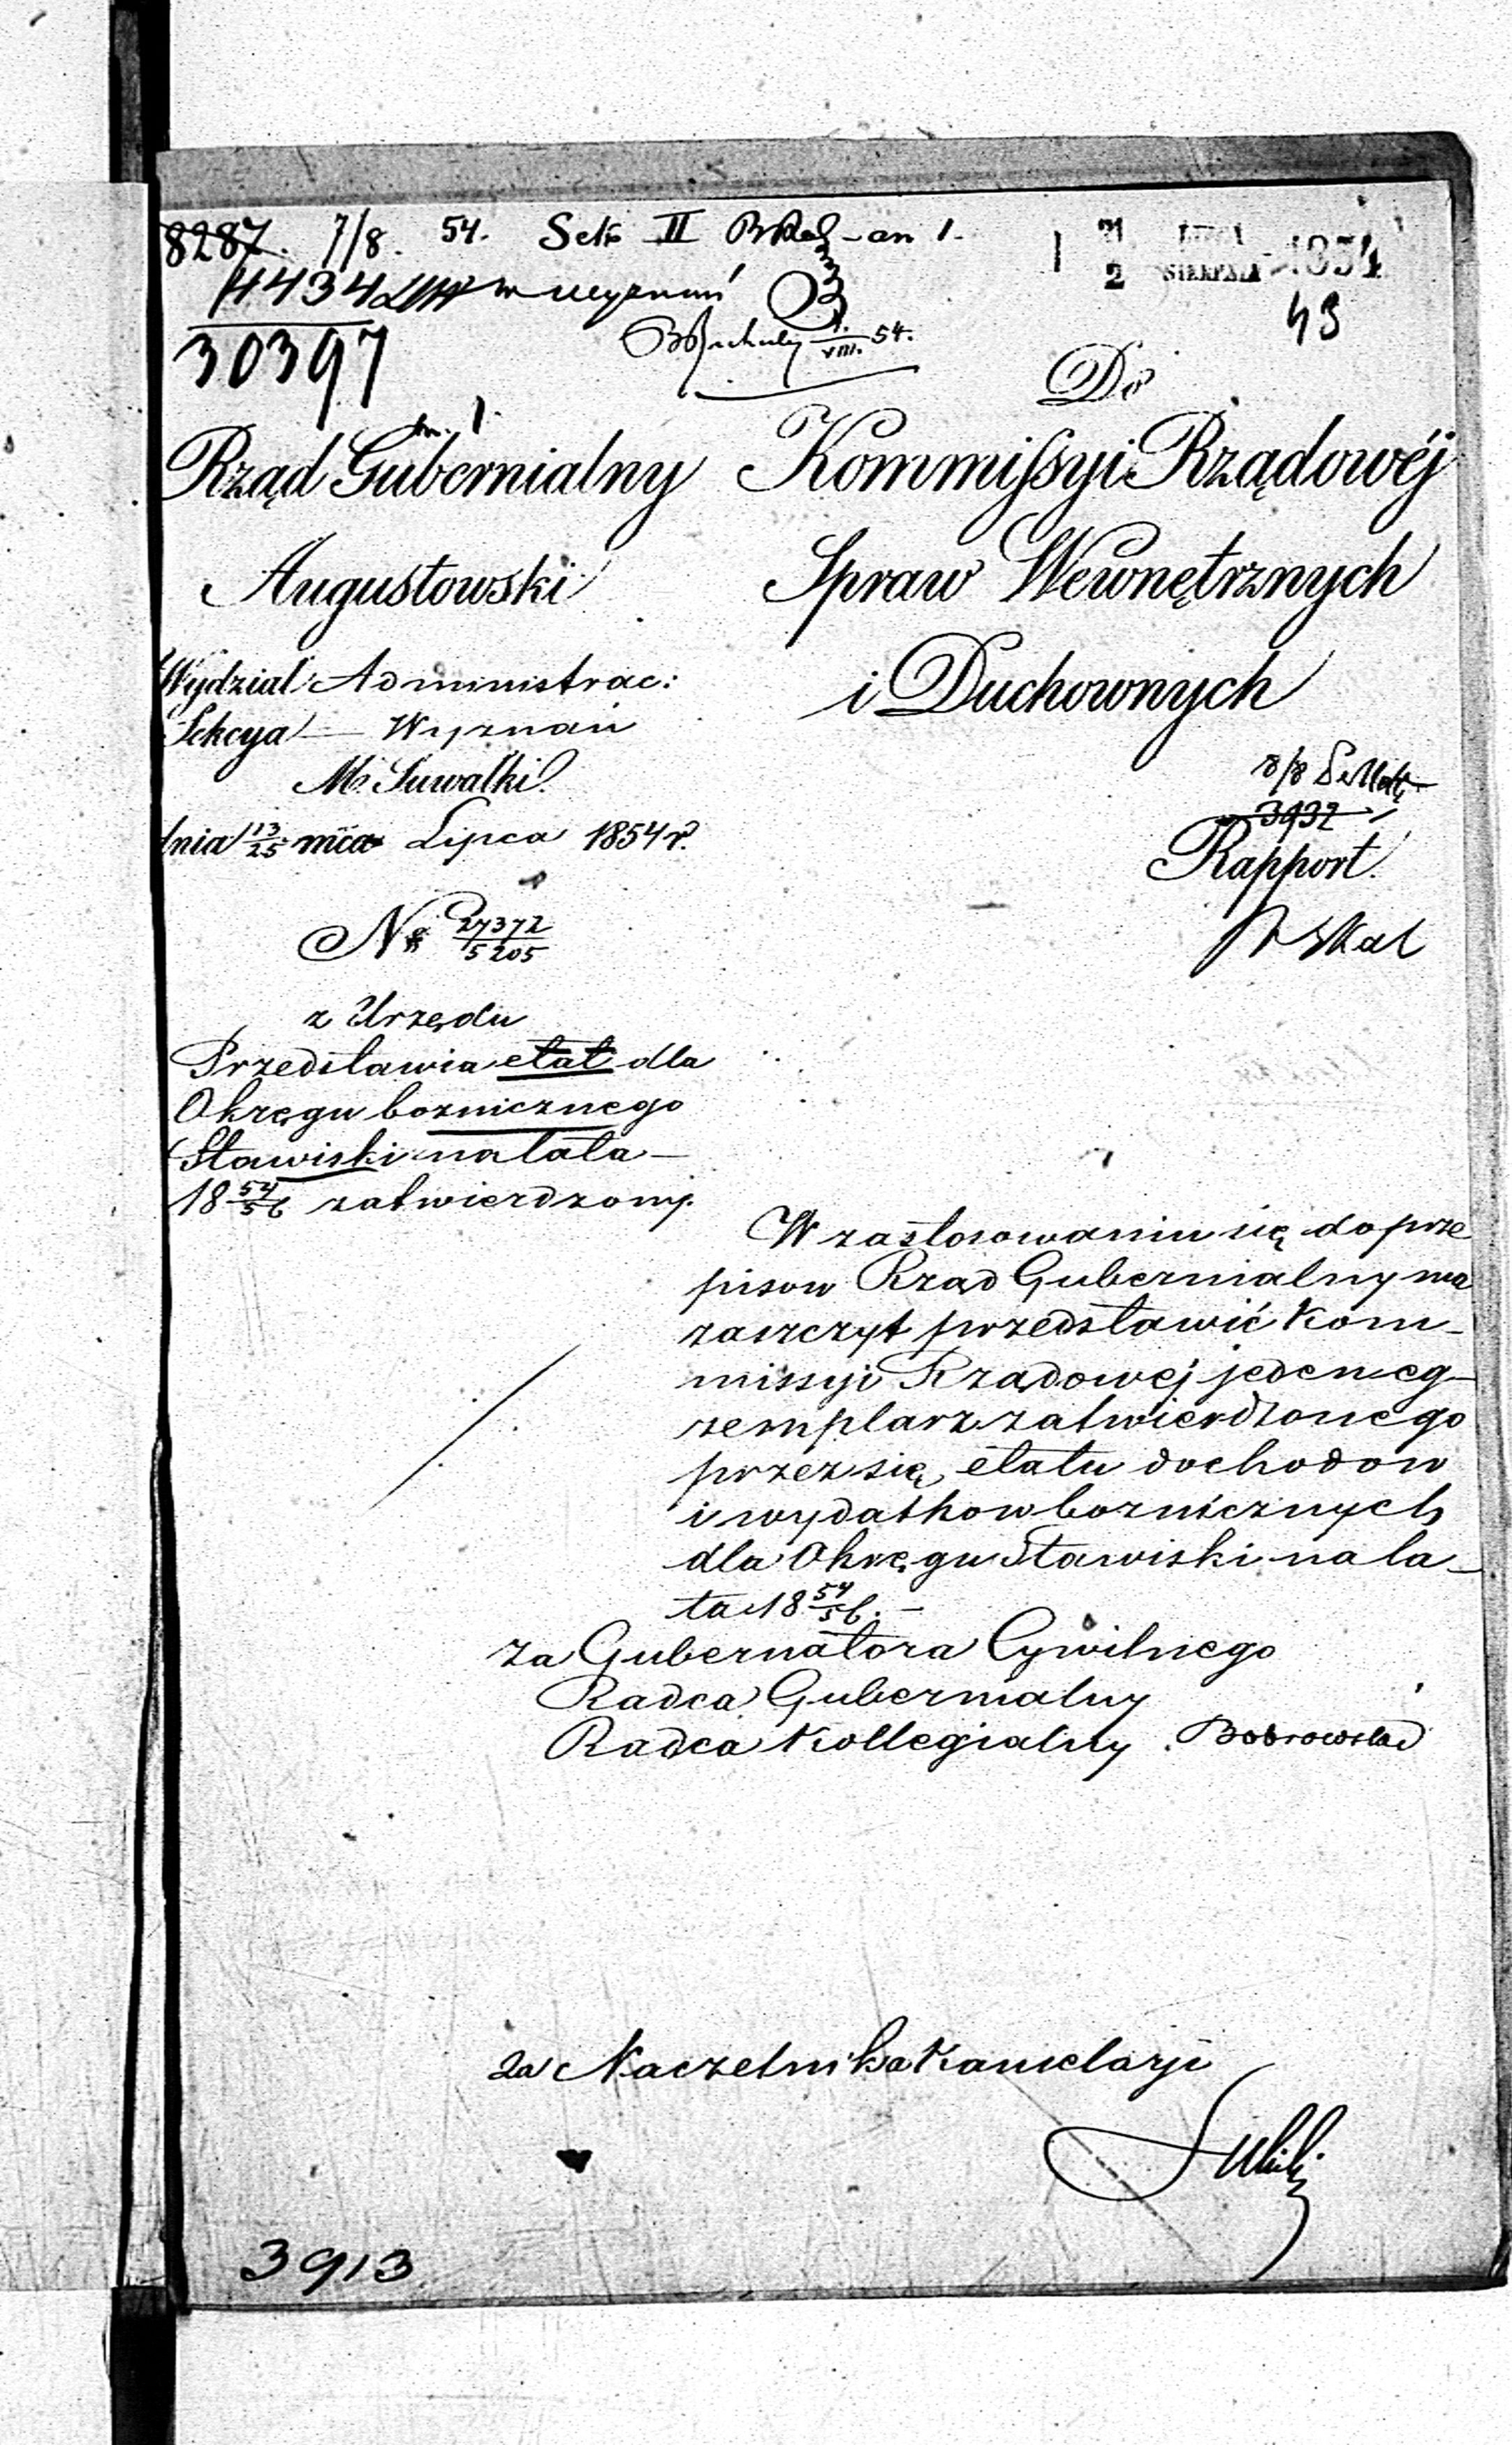 8287. 7/8. 54. Sek II
4434
30397
21 LIPCA
2 SIERPNIA 1854
VIII. 54.
Rząd Gubernialny
Augustowski
Wydział Administrac:
Sekcya Wyznań
M. Suwałki.
dnia 13/25 mca Lipca 1854 r.
No 27372/5205
z Urzędu
Przedstawia etat dla
Okręgu boznicznego
Stawiski na lata
18 54/56 zatwierdzony.
Do
Kommissyi Rządowéj
Spraw Wewnętrznych
i Duchownych
8/8
3932
Rapport.
W zastosowaniu się do prze
pisow Rząd Gubernialny ma
zaszczyt przedstawić Kom-
missyi Rządowej jeden eg-
zemplarz zatwierdzonego
przez się etatu dochodow
i wydatkow bozniczych
dla Okręgu Stawiski na la-
ta 18 54/56. -
za Gubernatora Cywilnego
Radca Gubernialny
Radca Kollegialny
za Naczelnika Kancelaryi
3913